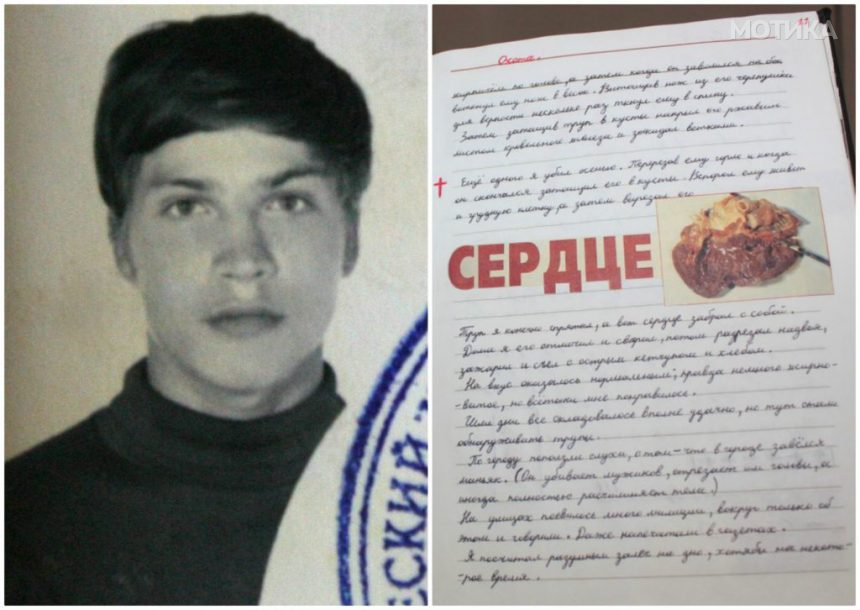 МОТИКА
11
Охота.
кирпичём по голове, а затем когда он завалился на бок
воткнул ему нож в висок. Вытащив нож из его черепушки
для верности несколько раз ткнул ему в спину.
Затем затащив труп в кусты накрыл его ржавым
листом кровельного железа и закидал ветками.
Ещё одного я убил осенью. Перерезав ему горло и когда
он скончался затащил его в кусты. Вспорол ему живот
и грудную клетку, а затем вырезал его
СЕРДЦЕ
Труп я конечно спрятал, а вот сердце забрал с собой.
Дома я его отмочил и сварил, потом разрезал надвое,
зажарил и съел с острым кетчупом и хлебом.
На вкус оказалось нормальным, правда немного жирно-
-ватое, но всётаки мне понравилось.
Шли дни всё складовалось вполне удачно, но тут стали
обнаруживать трупы.
По городу поползли слухи, о том-что в городе завёлся
маньяк. (Он убивает мужиков, отрезает им головы, а
иногда полностью расчленяет тела.)
На улицах появилось много милиции, вокруг только об
этом и говорили. Даже напечатали в газетах.
Я посчитал разумным залечь на дно, хотябы на некото-
-рое время.
ЕСКИЙ